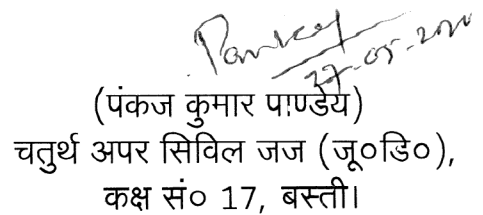 Pankaj
27-05-2020
(पंकज कुमार पाण्डेय)
चतुर्थ अपर सिविल जज (जू०डि०),
कक्ष सं० 17, बस्ती।